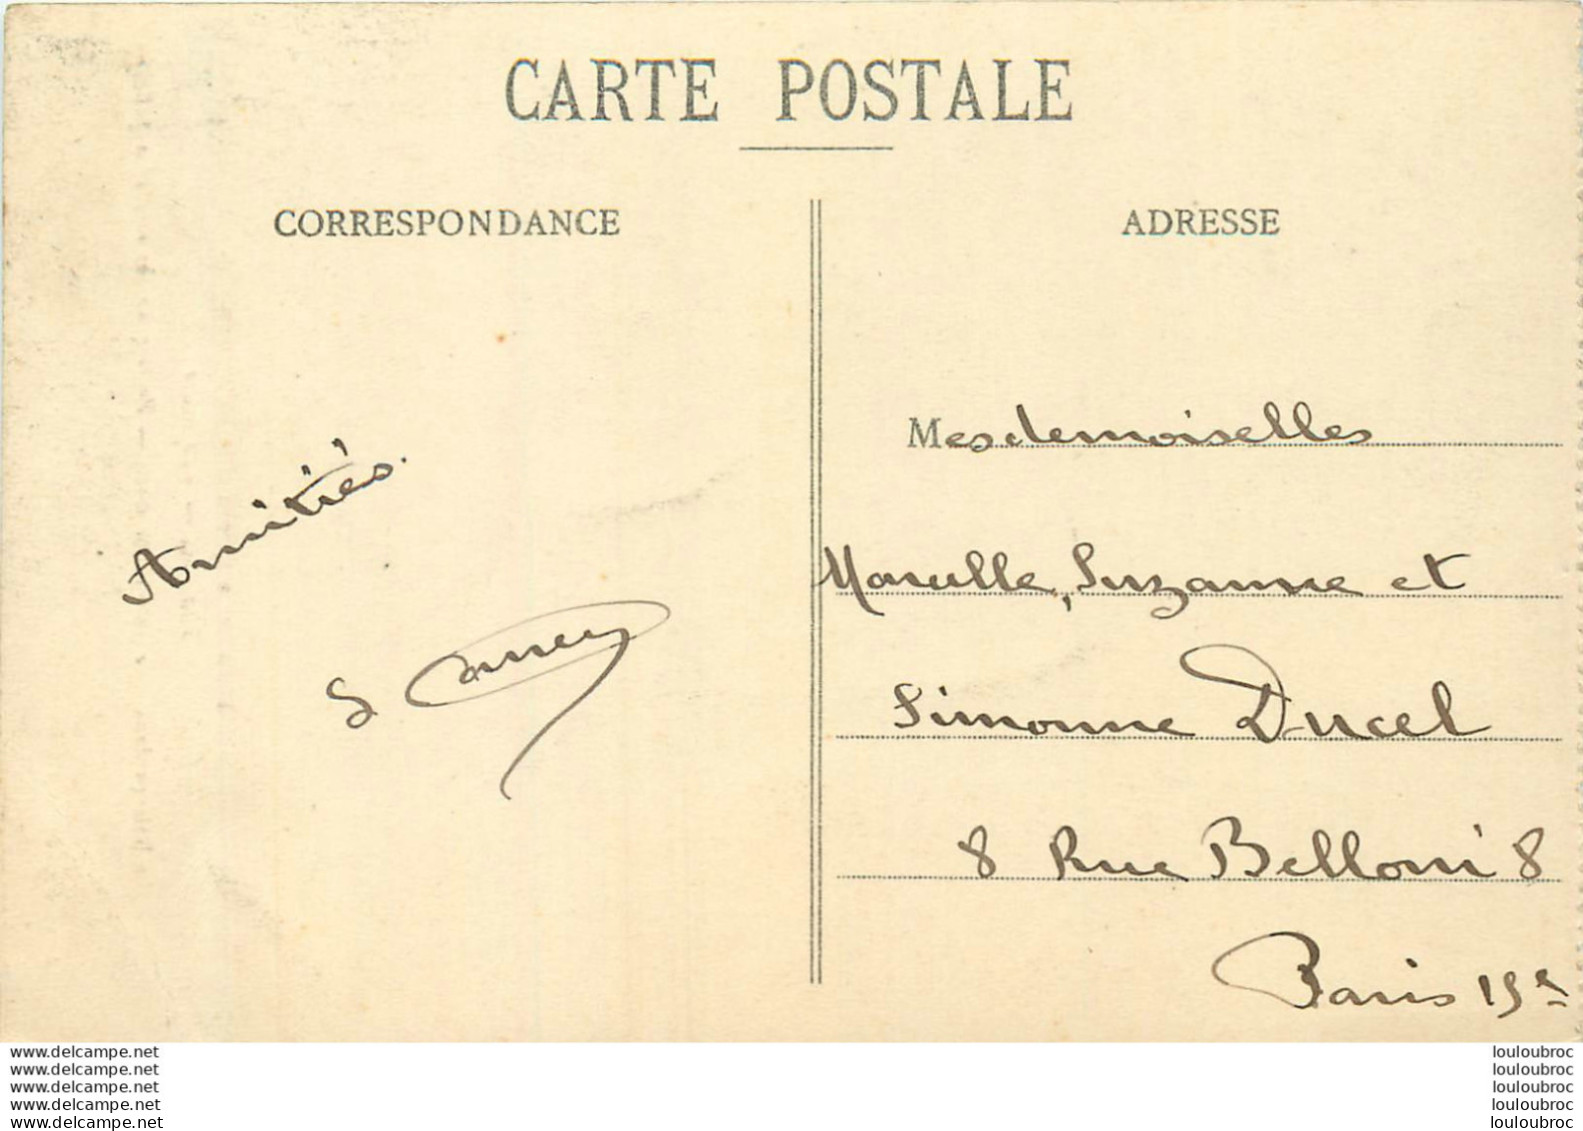 CARTE POSTALE
CORRESPONDANCE
ADRESSE
Amitiés.
S
Mesdemoiselles
Marcelle, Suzanne et
Simonne Ducel
8 Rue Belloni 8
Paris 15e
www.delcampe.net
www.delcampe.net
www.delcampe.net
www.delcampe.net
www.delcampe.net
louloubroc
louloubroc
louloubroc
louloubroc
louloubroc